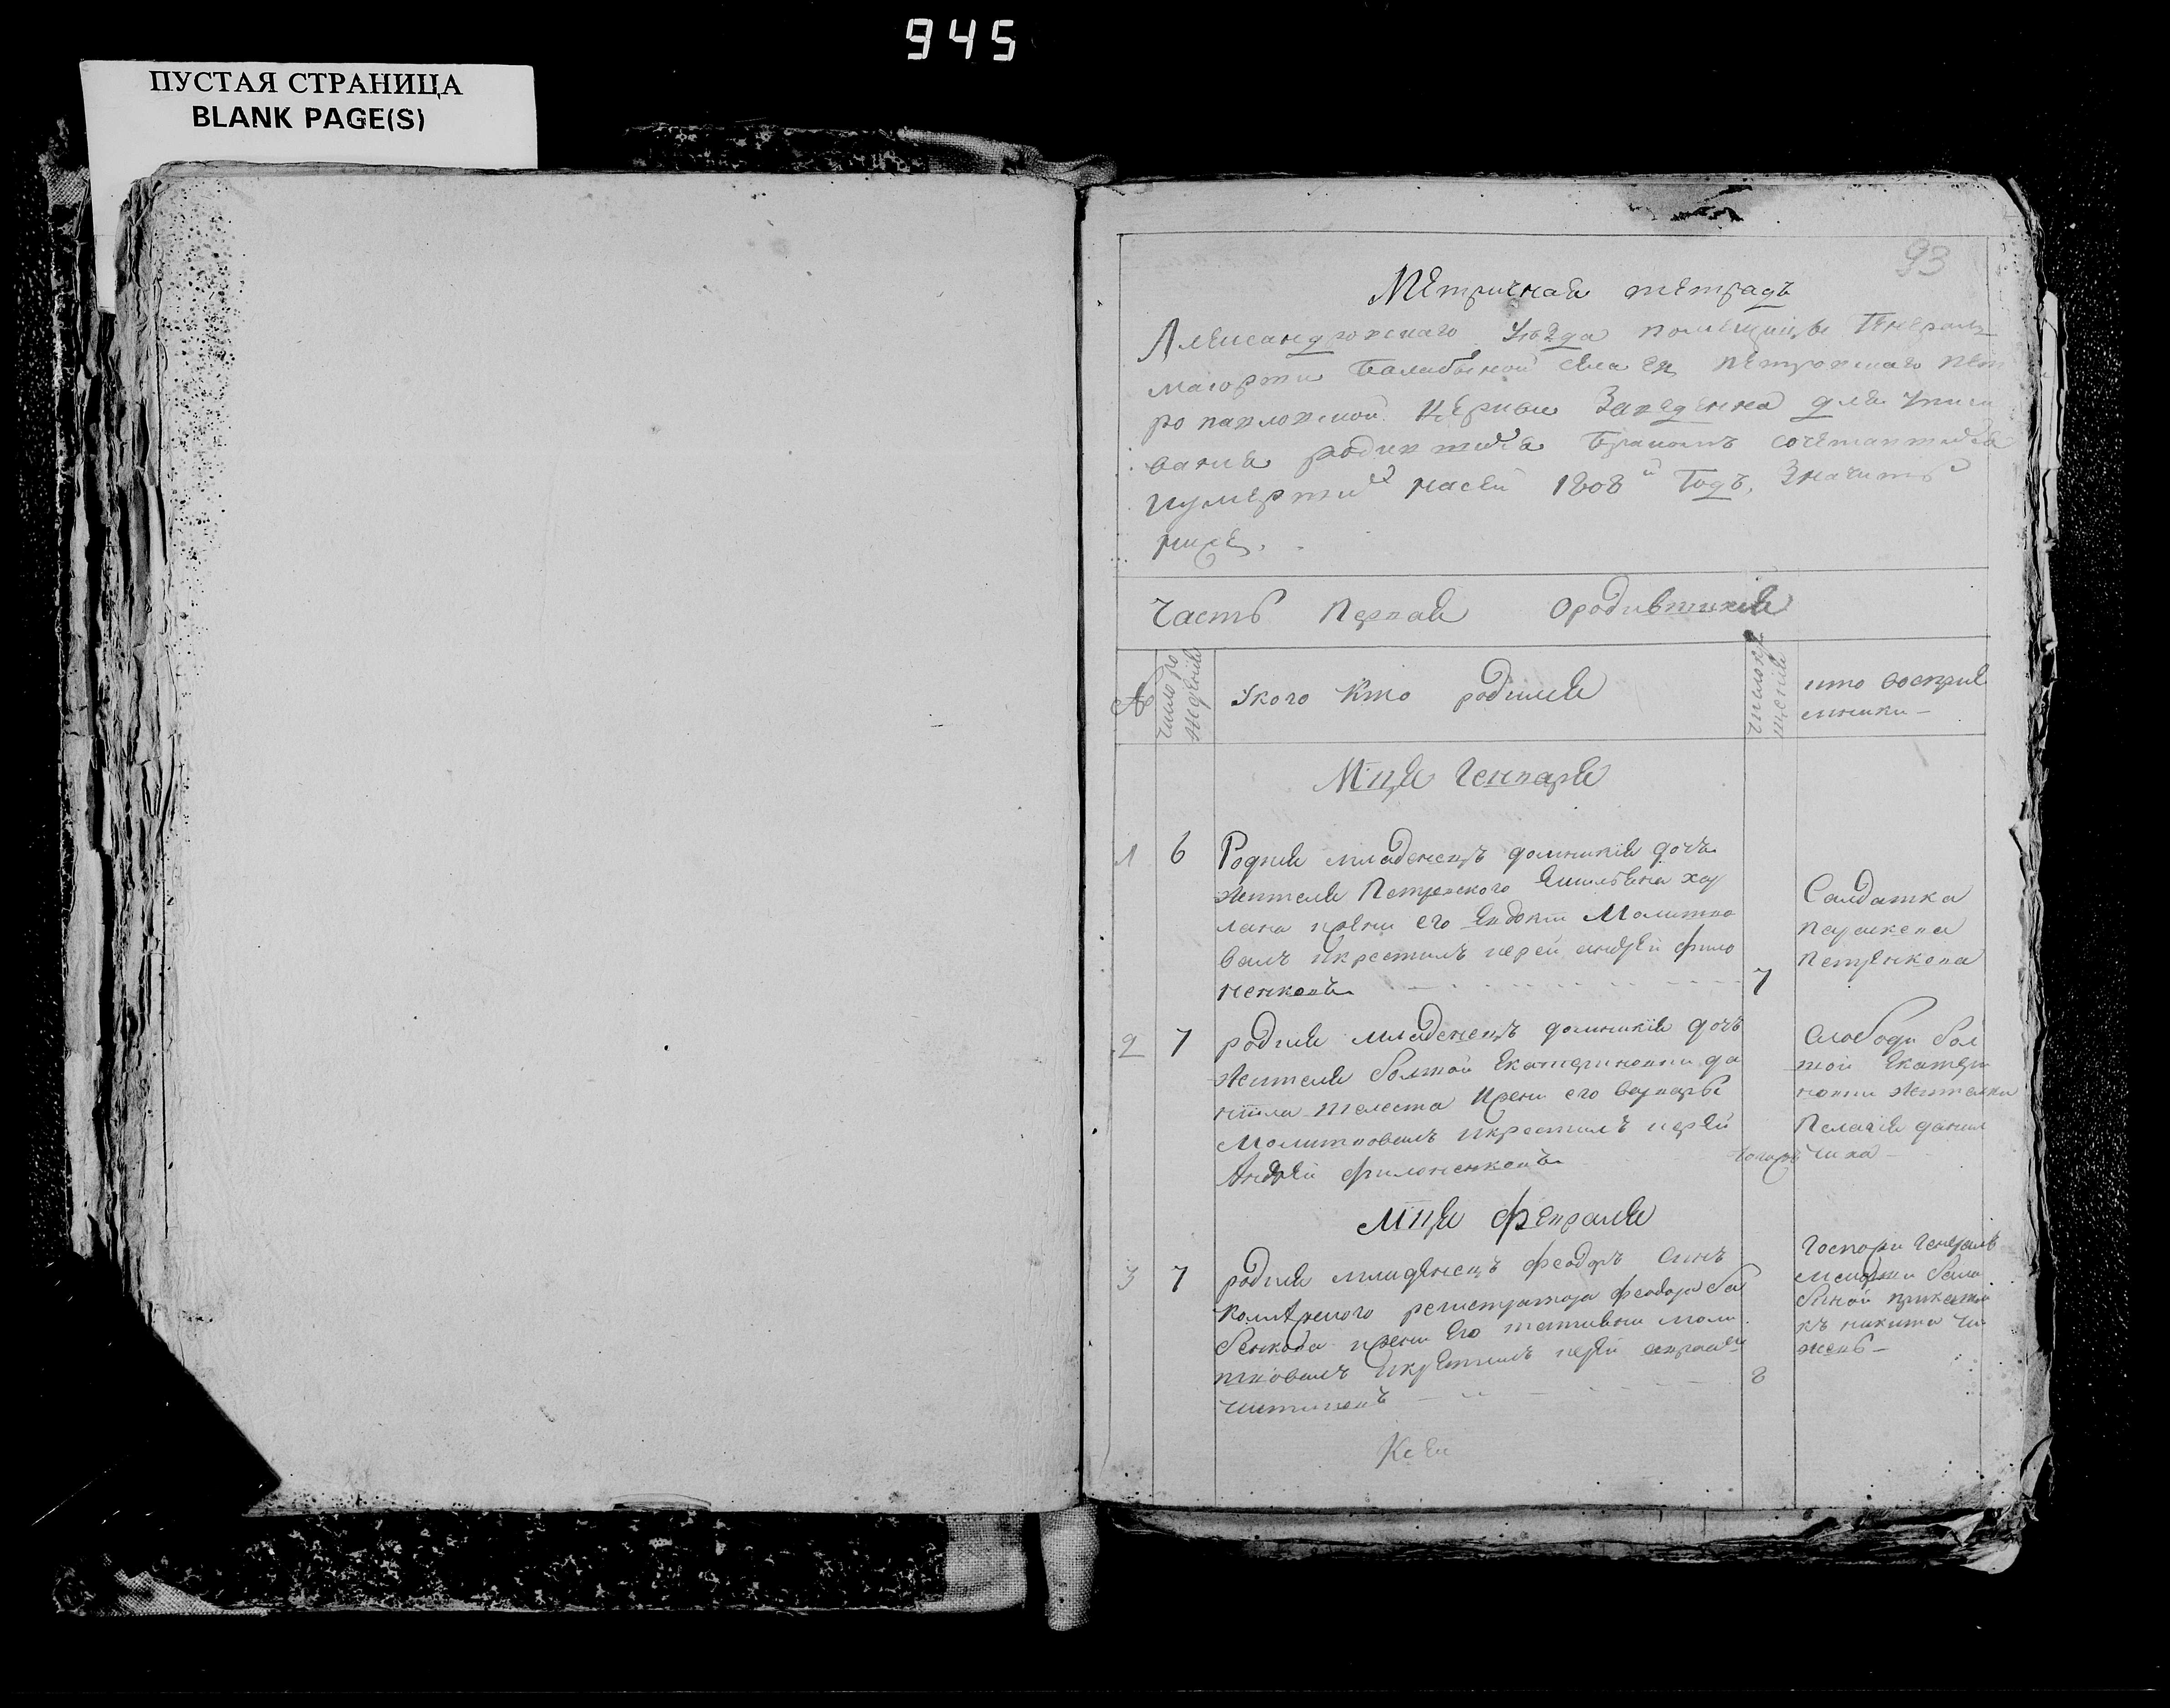 945
ПУСТАЯ СТРАНИЦА
BLANK PAGE(S)
93
Метричная тетрадь
Александровскаго Уезда помещицы Генералъ
маіорши Балабиной села ея Петровскаго Пет
ро павловской Церкви Заведенна для Записи
вания родившихся Бракомъ сочетавшихся
и умершихъ насей 1808й Годъ. Значитъ
ниже.
Часть Первая о родившихся
№
число ро
жденія
У кого Кто родился
число кре
щенія
кто восприе
мники
Мца Генваря
1 6 Родися младенецъ домникія дочь
жителя Петровского Емильяна хар
лана и жени его Евдокіи Молитво
валъ и крестилъ иерей андрей фило
ненковъ 7
Салдатка
параскева
Петренкова
2 7 родися младенецъ домникія дочь
жителя болшой Екатериновки да
ніила шелеста и жени его варвари
Молитвовалъ и крестилъ иерей
Андрей филоненковъ
слободи бол
шой Екатери
новки жителка
Пелагія данил
Мца февраля
3 7 родися младенецъ феодоръ синъ
колежского регистратора феодора ба
бенкова и жени Его татияни моли
твовалъ и крестилъ иерей
8
Госпожи Генералъ
маіорши бала
биной прикащи
къ никита